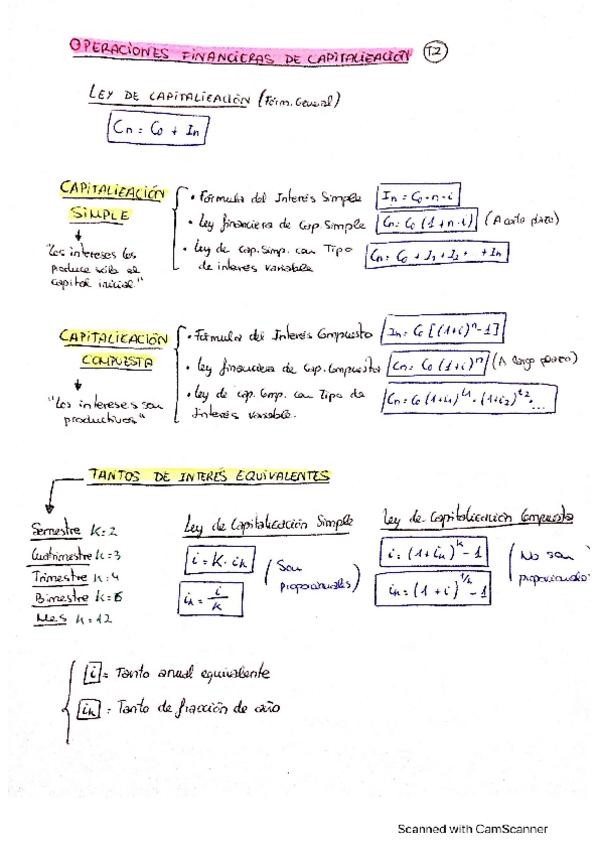 OPERACIONES FINANCIERAS DE CAPITALIZACIÓN T.2
LEY DE CAPITALIZACIÓN (Fórm. General)
Cn = C0 + In
CAPITALIZACIÓN SIMPLE
"Los intereses los produce sólo el capital inicial"
• Fórmula del Interés Simple In = C0·n·i
• Ley financiera de cap. Simple Cn = C0 (1+n·i) (A corto plazo)
• Ley de cap. simp. con Tipo de interés variable Cn = C0 + I1 + I2 + ... + In
CAPITALIZACIÓN COMPUESTA
"Los intereses son productivos"
• Fórmula del Interés Compuesto In = C0 [(1+i)^n - 1]
• Ley financiera de cap. Compuesta Cn = C0 (1+i)^n (A largo plazo)
• Ley de cap. Comp. con Tipo de Interés variable. Cn = C0 (1+i1)^t1 · (1+i2)^t2 · ...
TANTOS DE INTERÉS EQUIVALENTES
Semestre k=2
Cuatrimestre k=3
Trimestre k=4
Bimestre k=6
Mes k=12
Ley de Capitalización Simple
i = K · ik
ik = i/k
(Son proporcionales)
Ley de Capitalización Compuesta
i = (1+ik)^k - 1
ik = (1+i)^1/k - 1
(No son proporcionale
i = Tanto anual equivalente
ik = Tanto de fracción de año
Scanned with CamScanner